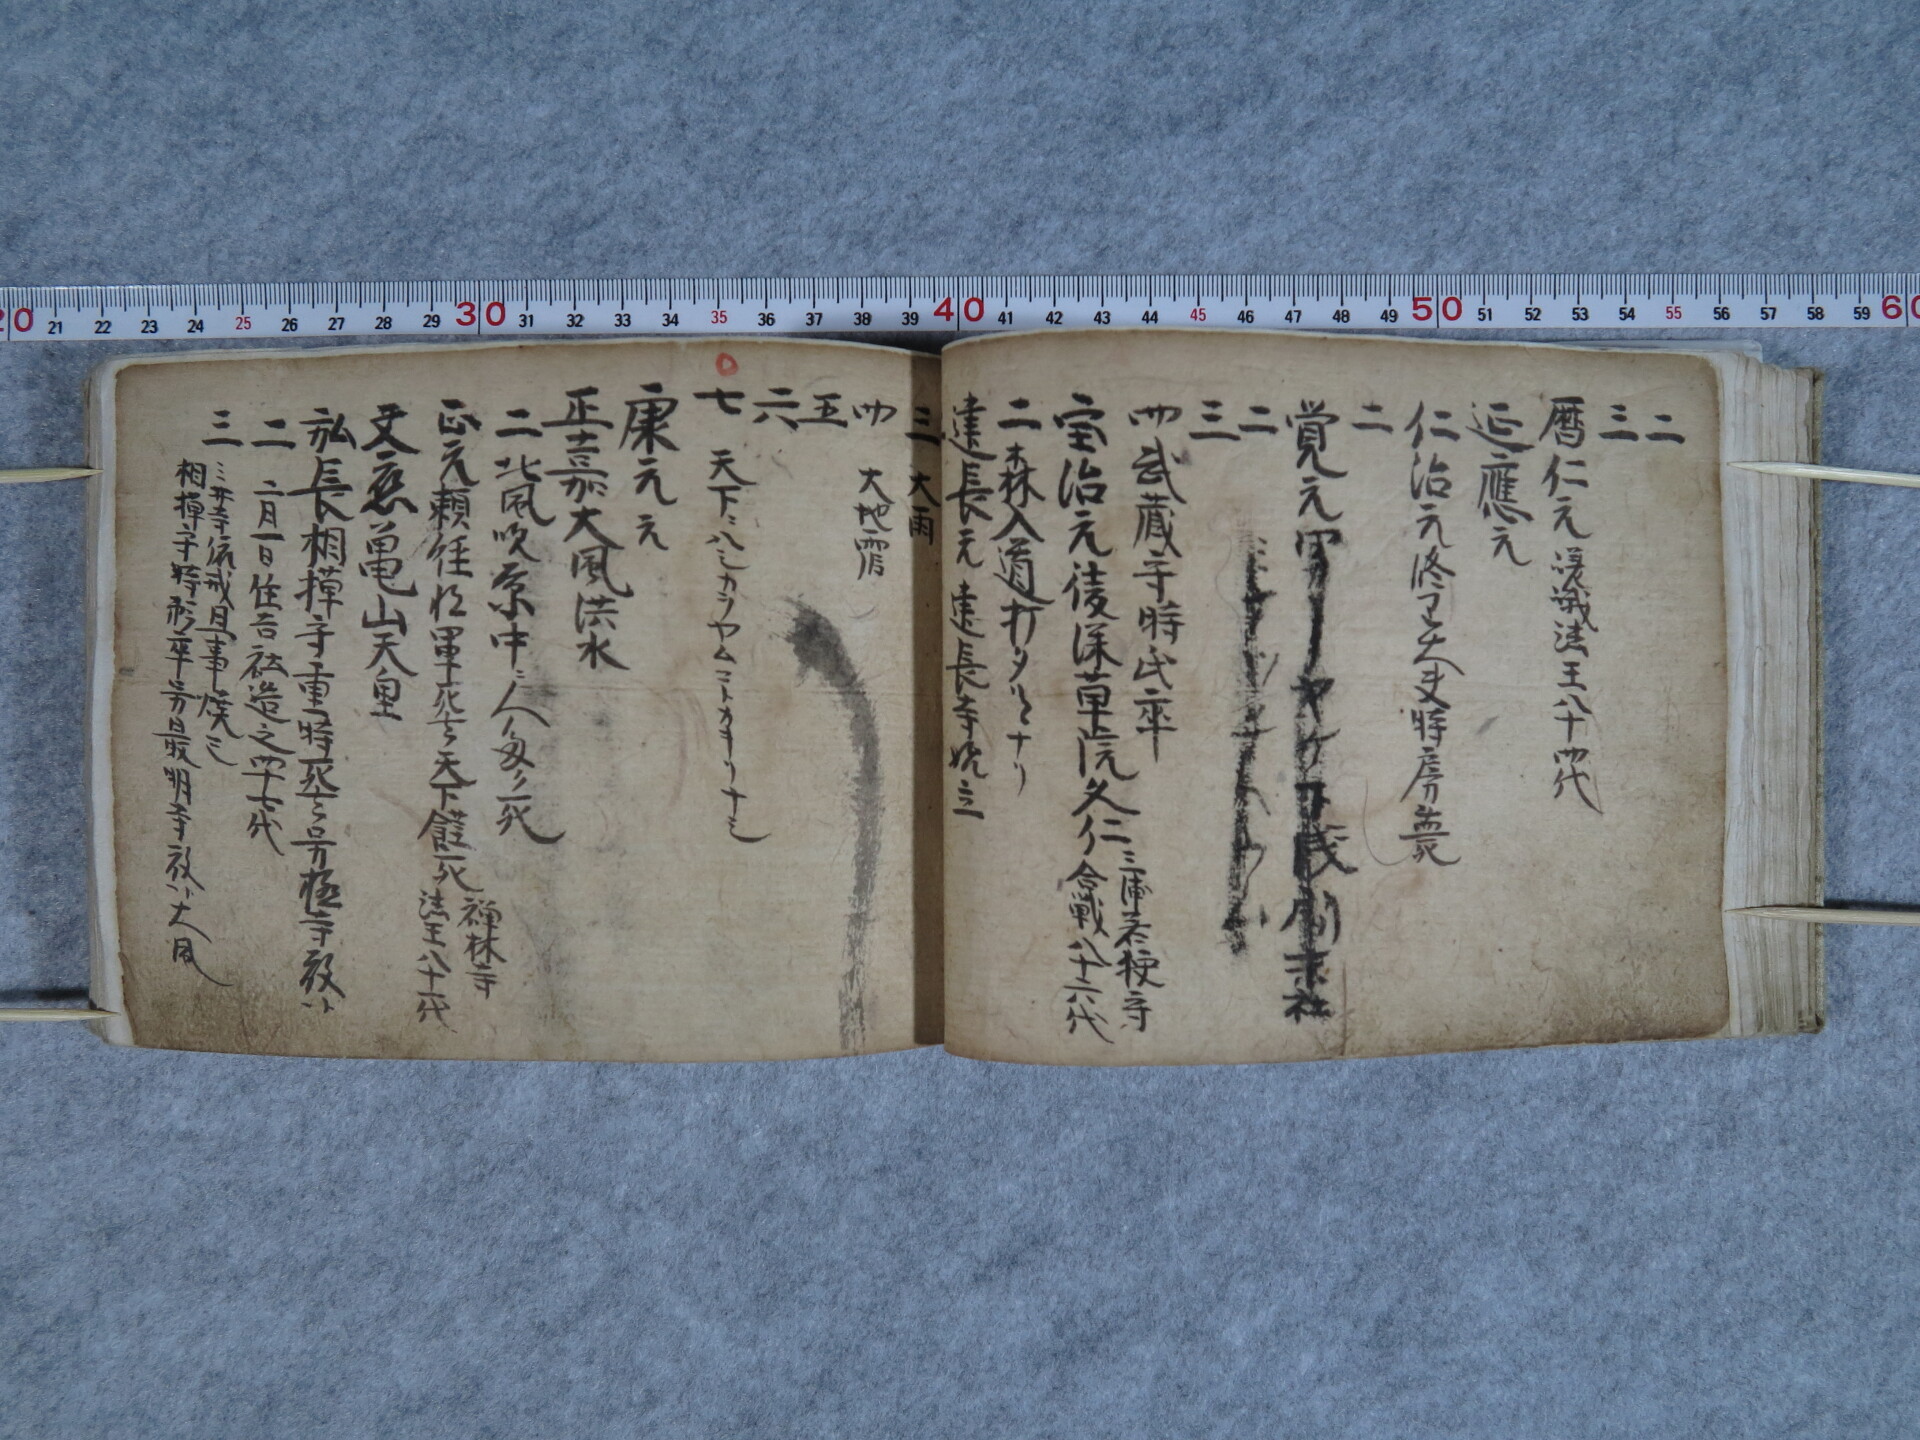 二
三
暦仁元 嵯峨法王八十四代
延應元
仁治元 修理大夫時房薨
二
覚元
二
三
四 武蔵守時氏卒
宝治元 後深草院久仁 三浦若狭守
合戦 八十六代
二 森入道打タルヽナリ
建長元 建長寺始立
三 大雨
四 大地震
五
六
七 天下ニハシカヲヤムコトカキリナシ
康元元
正嘉 大風洪水
二 北風吹 京中ニ人多ク死
正元 頼任将軍死去 天下饉死 禅林寺
法王八十八代
文應 亀山天皇
弘長 相摸守重時死去 号極寺殿ト
二 二月一日住吉社造之四十七代
三 三井寺依戒旦事焼之
相摸守時頼卒 号最明寺殿ト 大風
20 21 22 23 24 25 26 27 28 29 30 31 32 33 34 35 36 37 38 39 40 41 42 43 44 45 46 47 48 49 50 51 52 53 54 55 56 57 58 59 60